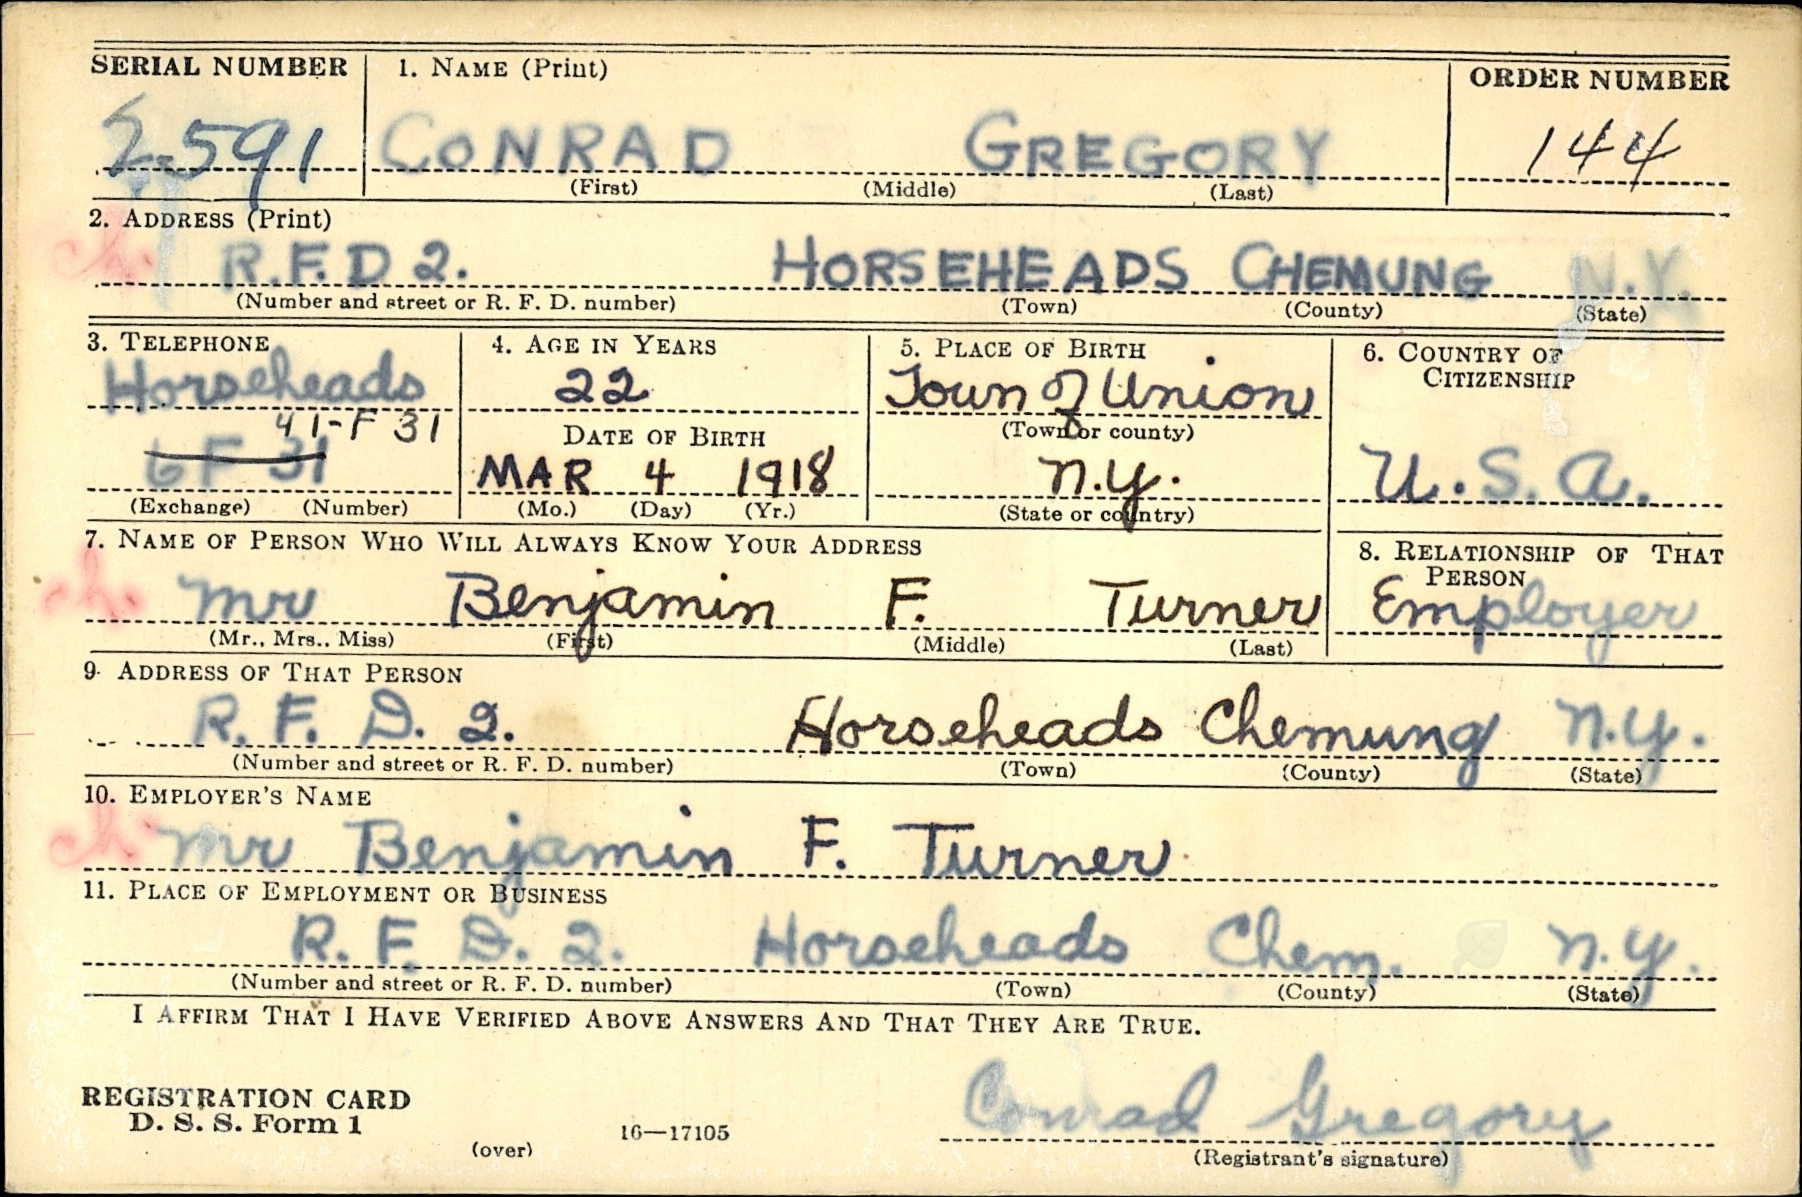 SERIAL NUMBER 1. NAME (Print) ORDER NUMBER
2591 CONRAD GREGORY 144
(First) (Middle) (Last)
2. ADDRESS (Print)
ch. R.F.D 2. HORSEHEADS CHEMUNG N.Y.
(Number and street or R. F. D. number) (Town) (County) (State)
3. TELEPHONE 4. AGE IN YEARS 5. PLACE OF BIRTH 6. COUNTRY OF
CITIZENSHIP
Horseheads 22 Town of Union
41-F 31 DATE OF BIRTH (Town or county)
6 F 31 MAR 4 1918 N.Y. U.S.A.
(Exchange) (Number) (Mo.) (Day) (Yr.) (State or country)
7. NAME OF PERSON WHO WILL ALWAYS KNOW YOUR ADDRESS 8. RELATIONSHIP OF THAT
PERSON
ch. Mr Benjamin F. Turner Employer
(Mr., Mrs., Miss) (First) (Middle) (Last)
9. ADDRESS OF THAT PERSON
R. F. D. 2. Horseheads Chemung N.Y.
(Number and street or R. F. D. number) (Town) (County) (State)
10. EMPLOYER'S NAME
ch. Mr Benjamin F. Turner
11. PLACE OF EMPLOYMENT OR BUSINESS
R. F. D. 2. Horseheads Chem. N.Y.
(Number and street or R. F. D. number) (Town) (County) (State)
I AFFIRM THAT I HAVE VERIFIED ABOVE ANSWERS AND THAT THEY ARE TRUE.
REGISTRATION CARD
D. S. S. Form 1 Conrad Gregory
(over) 16—17105 (Registrant's signature)